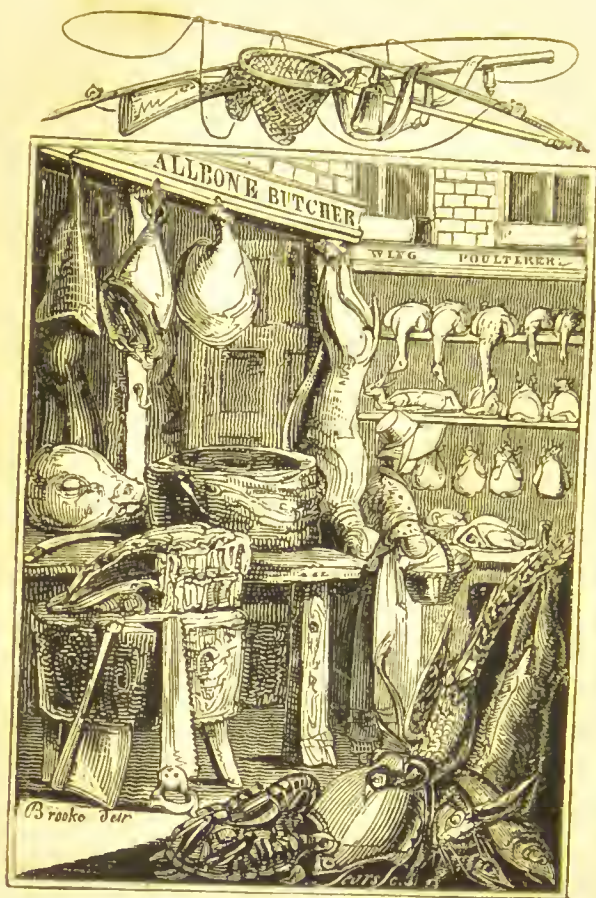 ALLBONE BUTCHER
WING POULTERER
Brooke
Sears